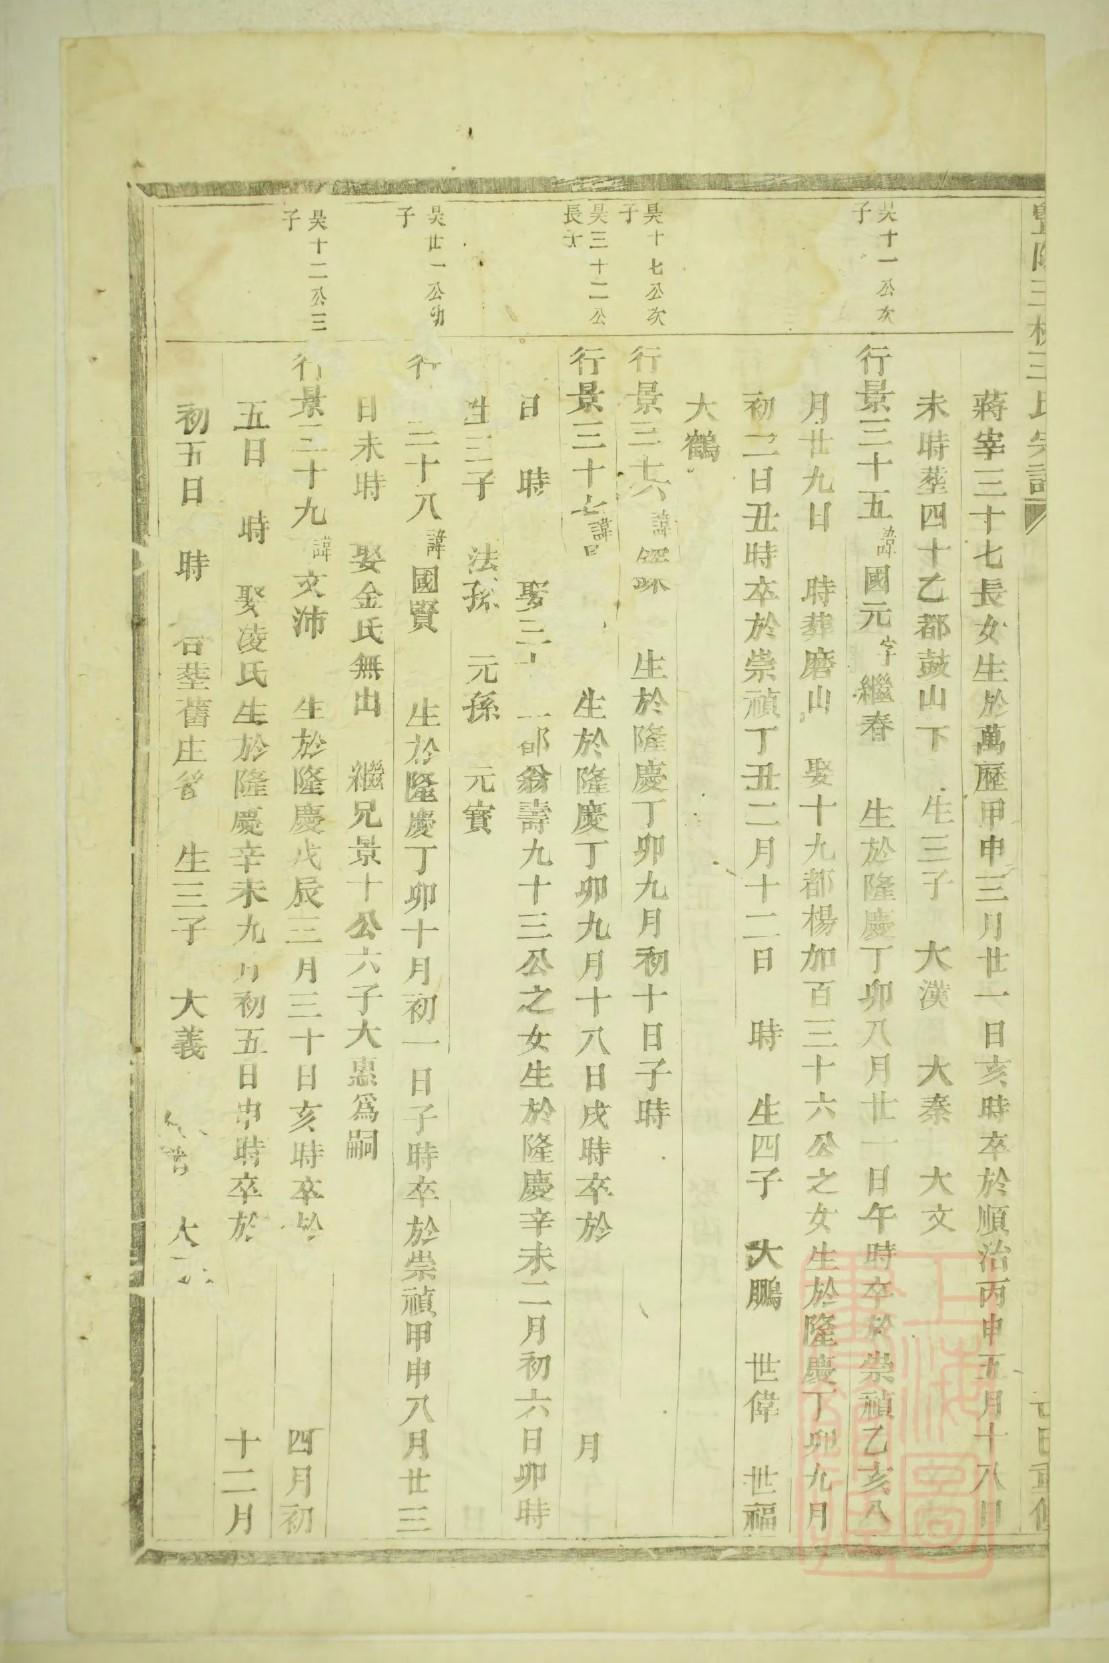 蔣宰三十七長女生於萬歷甲申三月廿一日亥時卒於順治丙申五月十八日
未時塟四十乙都鼓山下 生三子 大漢 大秦 大文
昊十一公次子
行景三十五諱國元字繼春 生於隆慶丁卯八月廿一日午時卒於崇禎乙亥八
月廿九日 時葬磨山 娶十九都楊加百三十六公之女生於隆慶丁卯九月
初二日丑時卒於崇禎丁丑二月十二日 時 生四子 大鵬 世偉 世福
大鶴
昊十七公次子
行景三十六諱 生於隆慶丁卯九月初十日子時
昊三十二公長子
行景三十七諱 生於隆慶丁卯九月十八日戌時卒於 月
日 時 娶三十 都翁壽九十三公之女生於隆慶辛未二月初六日卯時
生三子 法孫 元孫 元實
昊廿一公幼子
行 三十八諱國賢 生於隆慶丁卯十月初一日子時卒於崇禎甲申八月廿三
日未時 娶金氏無出 繼兄景十公六子大惠爲嗣
昊十二公三子
行景三十九諱文沛 生於隆慶戊辰三月三十日亥時卒於 四月初
五日 時 娶凌氏生於隆慶辛未九月初五日申時卒於 十二月
初五日 時 合塟舊庄 生三子 大義 大